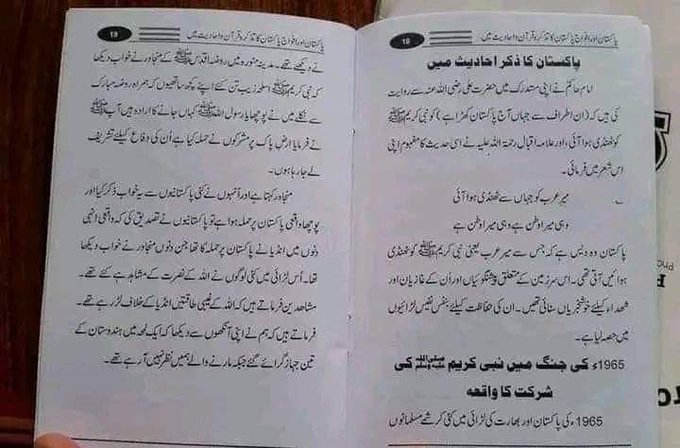 پاکستان اور افواجِ پاکستان کا تذکرہ قرآن و احادیث میں
18
پاکستان کا ذکر احادیث میں
امام حاکمؒ نے اپنی مستدرک میں حضرت علی رضی اللہ عنہ سے روایت
کی ہیں کہ (ان اطراف سے جہاں آج پاکستان کھڑا ہے) کو نبی کریم ﷺ
کو ٹھنڈی ہوا آئی، اور علامہ اقبال رحمۃ اللہ علیہ نے اسی حدیث کا مفہوم اپنی
اس شعر میں فرمائی۔
میر عرب کو جہاں سے ٹھنڈی ہوا آئی
وہی میرا وطن ہے وہی میرا وطن ہے
پاکستان وہ دیس ہے کہ جس سے میر عرب یعنی نبی کریم ﷺ کو ٹھنڈی
ہوائیں آتی تھی۔ اس سرزمین کے متعلق پیشنگوئیاں اور اُن کے غازیان اور
شھداء کیلئے خوشخبریاں سنائی تھیں۔ ان کی حفاظت کیلئے بنفس نفیس لڑائیوں
میں حصہ لیا ہے۔
1965ء کی جنگ میں نبی کریم ﷺ کی
شرکت کا واقعہ
1965ء کی پاکستان اور بھارت کی لڑائی میں کئی کرشمے مسلمانوں
پاکستان اور افواجِ پاکستان کا تذکرہ قرآن و احادیث میں
19
نے دیکھے تھے۔ مدینہ منورہ میں روضۂ اقدس ﷺ کے مجاور نے خواب دیکھا
کہ نبی کریم ﷺ اسلحہ زیب تن کئے اپنے کچھ ساتھیوں کے ہمراہ روضہ مبارک
سے نکلے میں نے پوچھا یا رسول اللہ ﷺ کہاں جانے کا ارادہ ہیں آپ ﷺ
نے فرمایا ارض پاک پر مشرکوں نے حملہ کیا ہے اُن کی دفاع کیلئے تشریف
لے جا رہا ہوں۔
مجاور کہتا ہے اور اُنہوں نے کئی پاکستانیوں سے یہ خواب ذکر کیا اور
پوچھا واقعی پاکستان پر حملہ ہوا ہے تو پاکستانیوں نے تصدیق کی کہ واقعی انہی
دنوں میں انڈیا نے پاکستان پر حملہ کا تھا جن دنوں مجاور نے خواب دیکھا
تھا۔ اُس لڑائی میں کئی لوگوں نے اللہ کے نصرت کے مشاہدے کئے تھے۔
مشاھدین فرماتے ہیں کہ اللہ کے غیبی طاقتیں انڈیا کے خلاف لڑ رہے تھے۔
فرماتے ہیں کہ ہم نے اپنی آنکھوں سے دیکھا کہ ایک لمحہ میں ہندوستان کے
تین جہاز گرائے گئے جبکہ مارنے والے ہمیں نظر نہیں آ رہے تھے۔